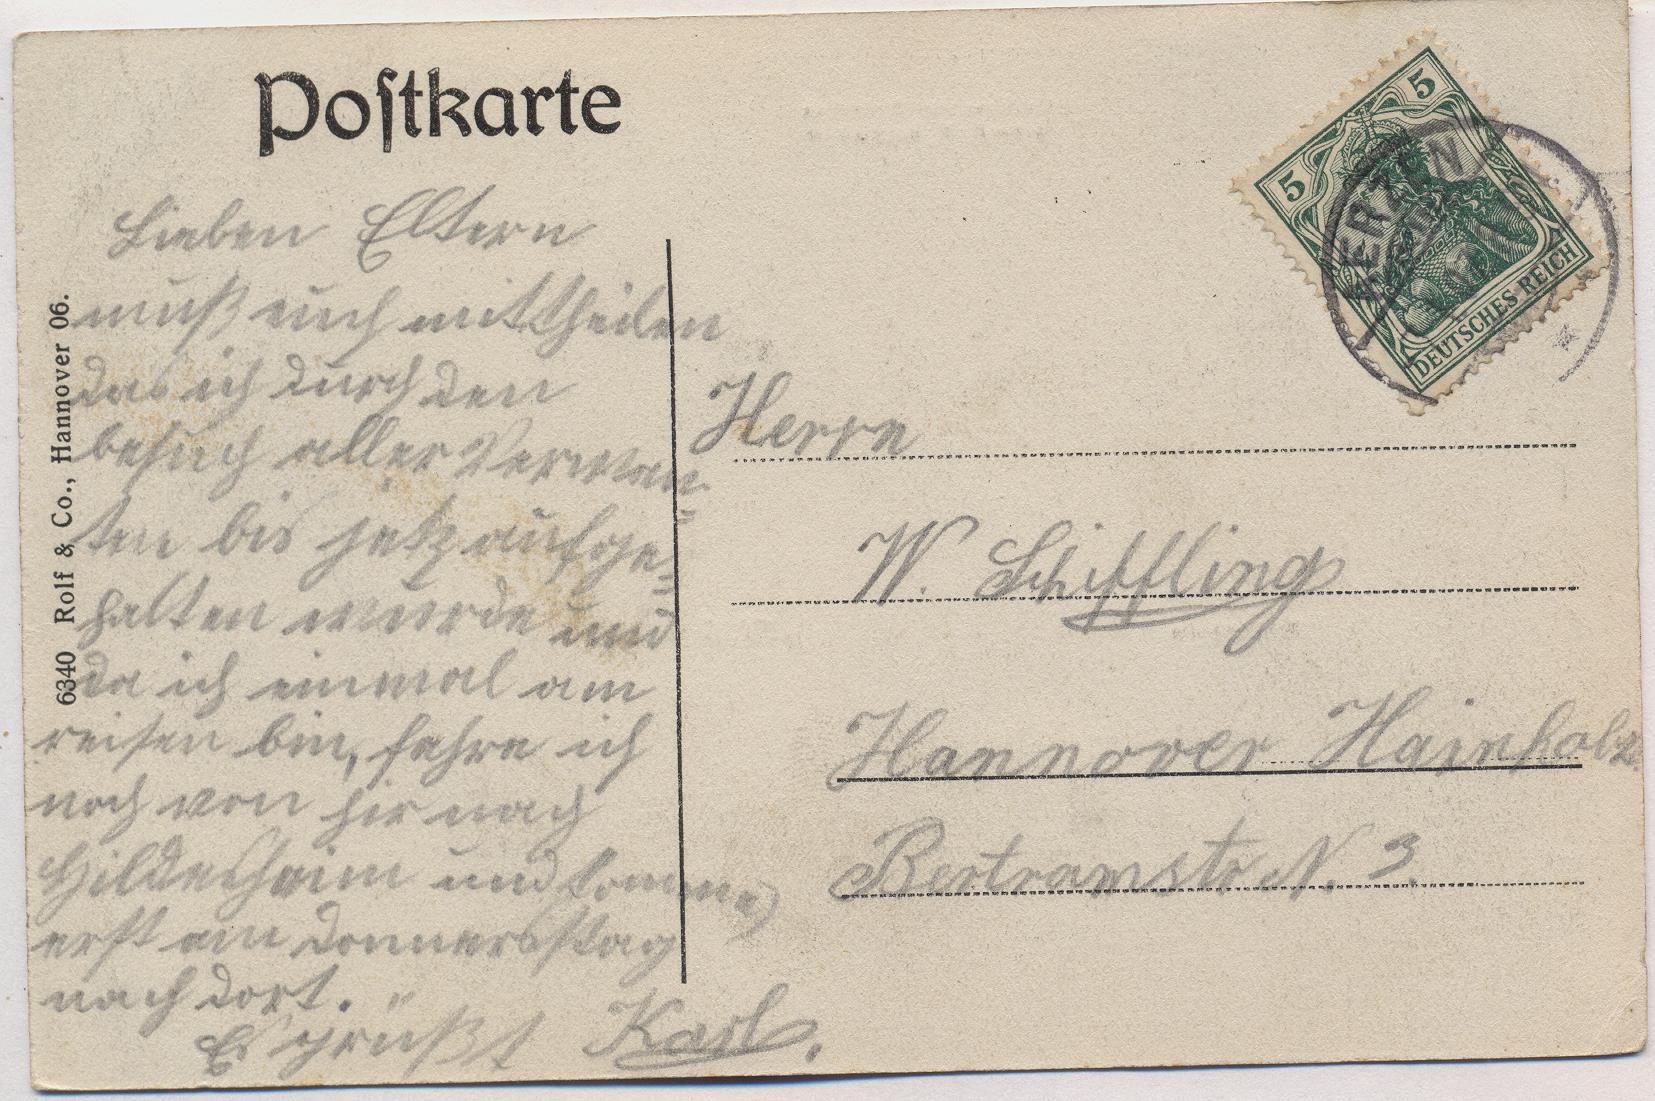 Postkarte
Lieben Eltern
muß euch mittheilen
das ich durch den
besuch aller Verwan=
ten bis jetz aufge=
halten wurde und
da ich einmal am
reisen bin, fahre ich
noch von hir nach
Hildesheim und komme
erst am Donnersstag
nach dort.
Es grüßt Karl.
6340 Rolf & Co., Hannover 06.
5
5
DEUTSCHES REICH
ERZEN
Herrn
W. Schiffling
Hannover Hainholz.
Bertramstr N. 3.